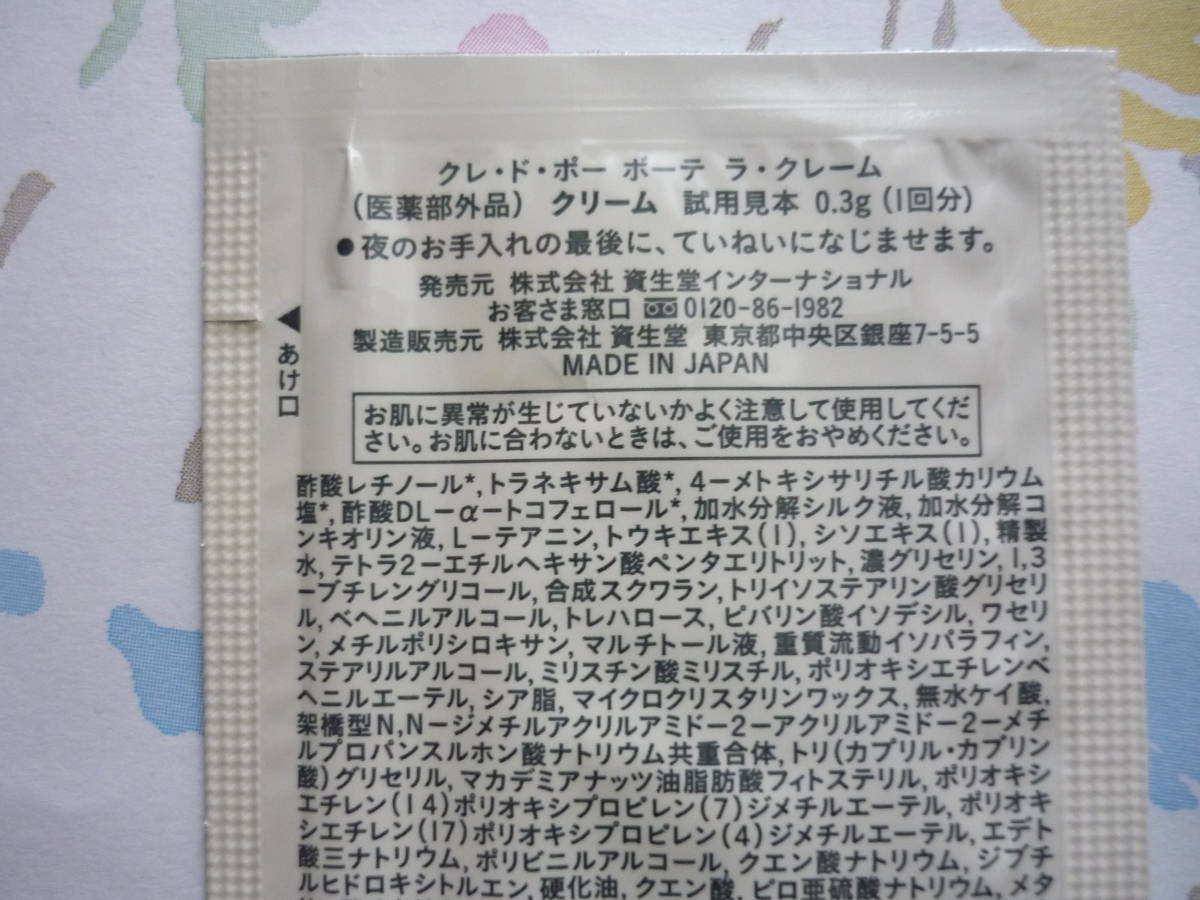 クレ・ド・ポー ボーテ ラ・クレーム
（医薬部外品） クリーム 試用見本 0.3g（1回分）
●夜のお手入れの最後に、ていねいになじませます。
発売元 株式会社 資生堂インターナショナル
お客さま窓口 0120-86-1982
製造販売元 株式会社 資生堂 東京都中央区銀座7-5-5
MADE IN JAPAN
◀あけ口
お肌に異常が生じていないかよく注意して使用してくだ
さい。お肌に合わないときは、ご使用をおやめください。
酢酸レチノール*, トラネキサム酸*, 4－メトキシサリチル酸カリウム
塩*, 酢酸DL－α－トコフェロール*, 加水分解シルク液, 加水分解コ
ンキオリン液, L－テアニン, トウキエキス(1), シソエキス(1), 精製
水, テトラ2－エチルヘキサン酸ペンタエリトリット, 濃グリセリン, 1,3
－ブチレングリコール, 合成スクワラン, トリイソステアリン酸グリセリ
ル, ベヘニルアルコール, トレハロース, ピバリン酸イソデシル, ワセリ
ン, メチルポリシロキサン, マルチトール液, 重質流動イソパラフィン,
ステアリルアルコール, ミリスチン酸ミリスチル, ポリオキシエチレンベ
ヘニルエーテル, シア脂, マイクロクリスタリンワックス, 無水ケイ酸,
架橋型N,N－ジメチルアクリルアミド－2－アクリルアミド－2－メチ
ルプロパンスルホン酸ナトリウム共重合体, トリ(カプリル・カプリン
酸)グリセリル, マカデミアナッツ油脂肪酸フィトステリル, ポリオキシ
エチレン(14)ポリオキシプロピレン(7)ジメチルエーテル, ポリオキ
シエチレン(17)ポリオキシプロピレン(4)ジメチルエーテル, エデト
酸三ナトリウム, ポリビニルアルコール, クエン酸ナトリウム, ジブチ
ルヒドロキシトルエン, 硬化油, クエン酸, ピロ亜硫酸ナトリウム, メタ